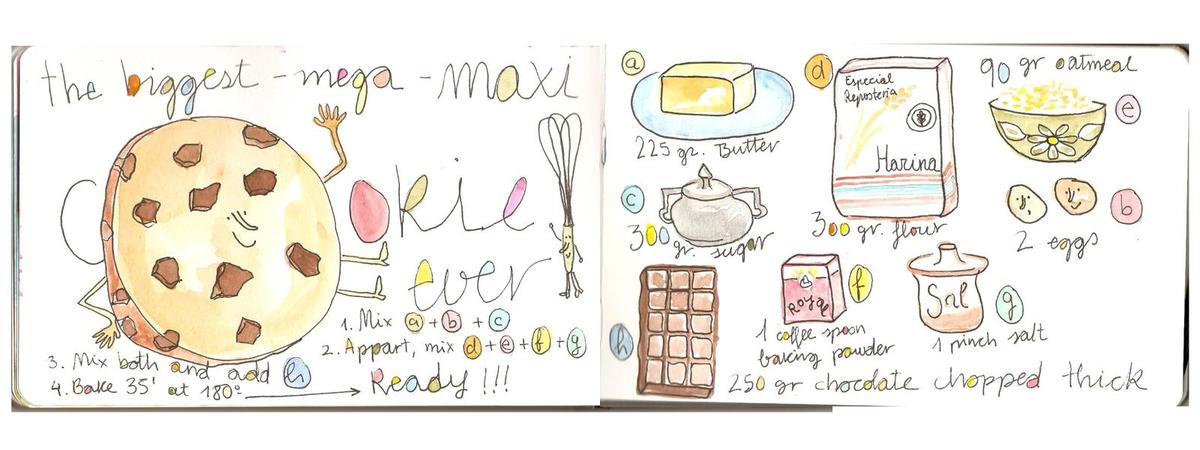 the biggest - mega - maxi
Cookie
ever
1. Mix a + b + c
2. Appart, mix d + e + f + g
3. Mix both and add h
4. Bake 35' at 180º → Ready !!!
a
225 gr. Butter
d
Especial
Repostería
Harina
300 gr. flour
90 gr oatmeal
e
c
300 gr. sugar
b
2 eggs
h
Royal
f
1 coffee spoon
baking powder
Sal
g
1 pinch salt
250 gr chocolate chopped thick